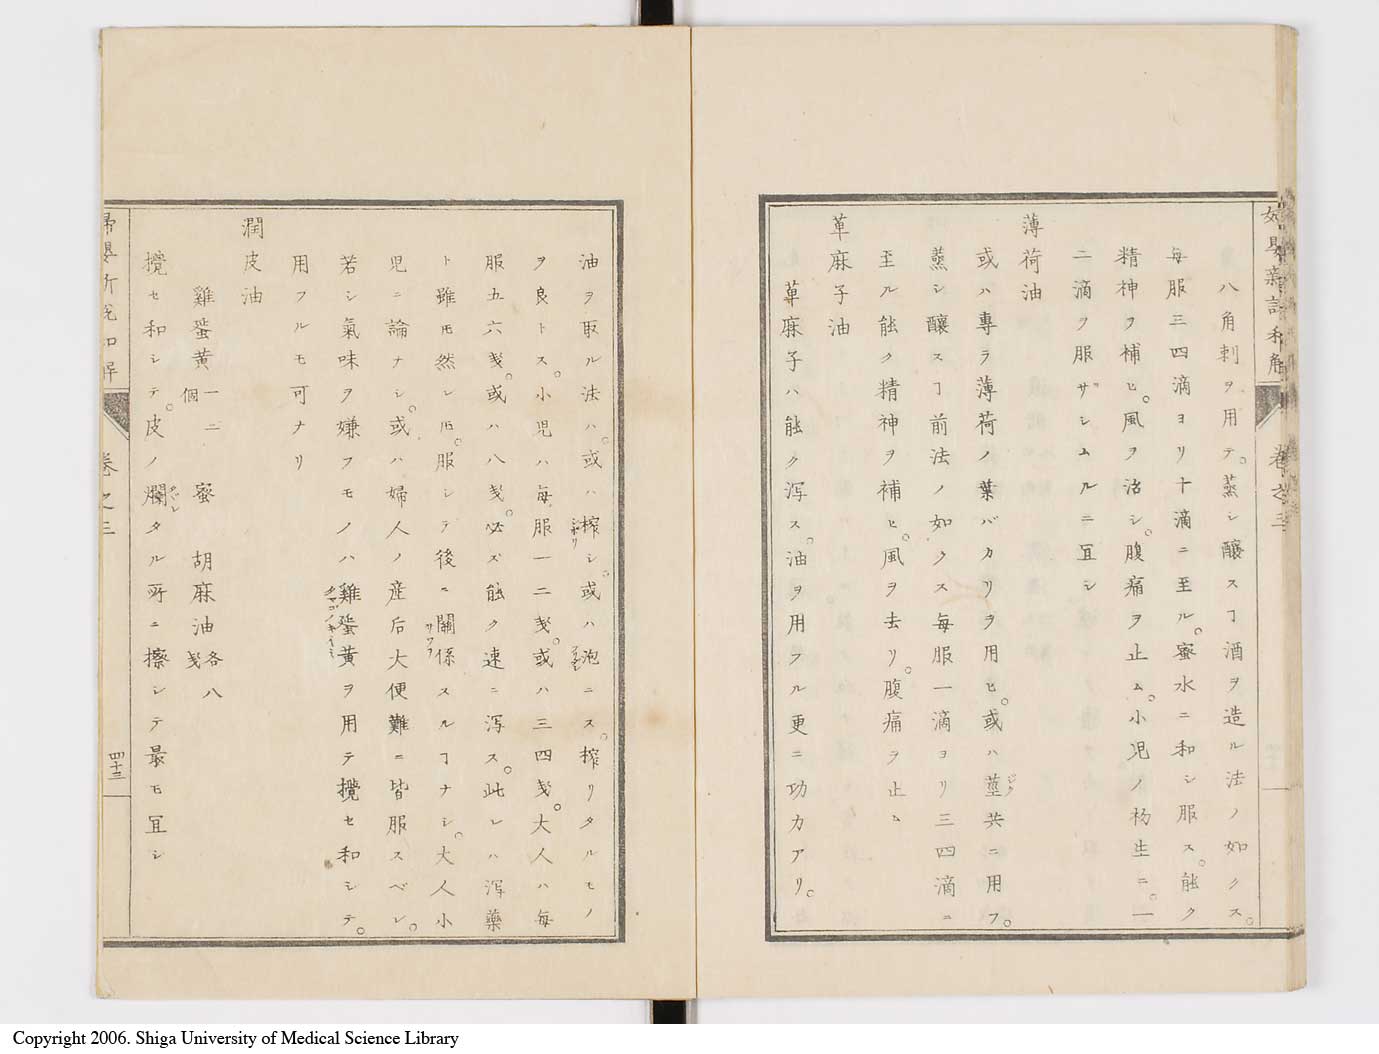 婦嬰新説和解
卷之三
八角刺ヲ用テ。蒸シ釀スヿ酒ヲ造ル法ノ如クス。
毎服三四滴ヨリ十滴ニ至ル。蜜水ニ和シ服ス。能ク
精神ヲ補ヒ。風ヲ治シ。腹痛ヲ止ム。小児ノ初生ニ。一
二滴ヲ服サシムルニ冝シ
薄荷油
或ハ專ラ薄荷ノ葉バカリヲ用ヒ。或ハ莖共ニ用フ。
蒸シ釀スヿ前法ノ如クス毎服一滴ヨリ三四滴ニ
至ル能ク精神ヲ補ヒ。風ヲ去リ。腹痛ヲ止ム
萆麻子油
萆麻子ハ能ク瀉ス。油ヲ用フル更ニ功力アリ。
油ヲ取ル法ハ。或ハ榨シ。或ハ泡ニス。榨リタルモノ
ヲ良トス。小児ハ毎服一二戔。或ハ三四戔。大人ハ毎
服五六戔。或ハ八戔。必ズ能ク速ニ瀉ス。此レハ瀉藥
ト雖𪜈然レ𪜈。服シテ後ニ關係スルヿナシ。大人小
児ニ論ナシ。或ハ婦人ノ産后大便難ニ皆服スベシ。
若シ氣味ヲ嫌フモノハ雞蛋黄ヲ用テ攪セ和シテ。
用フルモ可ナリ
潤皮油
雞蛋黄 一二個 蜜 胡麻油 各八戔
攪セ和シテ。皮ノ爛タル所ニ擦シテ最モ冝シ
婦嬰新説和解
卷之三
四十三
Copyright 2006. Shiga University of Medical Science Library